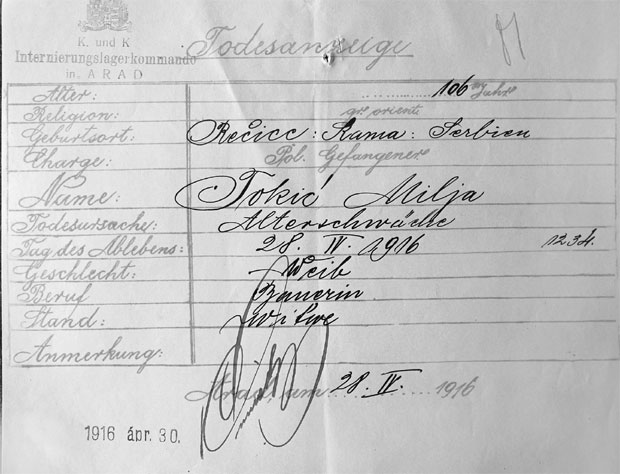 K. und K
Internierungslagerkommando
in ARAD
Todesanzeige
Alter: 106 Jahre
Religion: gr. orient.
Geburtsort: Rečicc: Rama: Serbien
Charge: Pol. Gefangener
Name: Tokić Milja
Todesursache: Alterschwäche
Tag des Ablebens: 28. IV. 1916 1234.
Geschlecht: Weib
Beruf Bauerin
Stand: Witwe
Anmerkung:
Arad, am 28. IV. 1916
1916 ápr. 30.